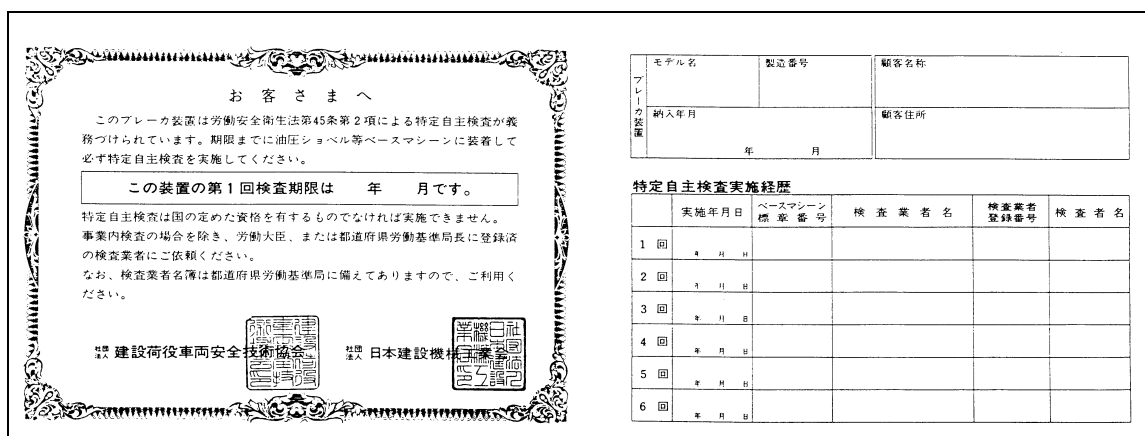 お客さまへ
このブレーカ装置は労働安全衛生法第45条第2項による特定自主検査が義
務づけられています。期限までに油圧ショベル等ベースマシーンに装着して
必ず特定自主検査を実施してください。
この装置の第1回検査期限は 年 月です。
特定自主検査は国の定めた資格を有するものでなければ実施できません。
事業内検査の場合を除き、労働大臣、または都道府県労働基準局長に登録済
の検査業者にご依頼ください。
なお、検査業者名簿は都道府県労働基準局に備えてありますので、ご利用く
ださい。
社団法人 建設荷役車両安全技術協会 社団法人 日本建設機械工業会
ブレーカ装置
モデル名 製造番号 顧客名称
納入年月 顧客住所
年 月
特定自主検査実施経歴
実施年月日 ベースマシーン標章番号 検査業者名 検査業者登録番号 検査者名
1回 年 月 日
2回 年 月 日
3回 年 月 日
4回 年 月 日
5回 年 月 日
6回 年 月 日